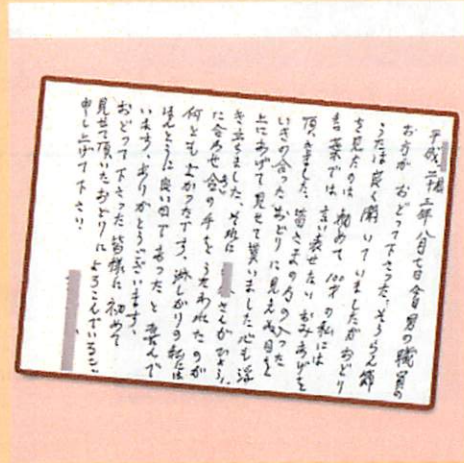 平成二十三年八月七日今日男の職員の
お方が おどって下さった、そうらん節
うたは良く聞いていましたがおどり
を見たのは 初めて 100才の私には
言葉では、言い表せないおみあげを
頂きました、皆さまの力の入った
いきの合ったおどりに見えぬ目を
上にあげて見せて貰いました心も浮
き立ちました、それに さんがひょう
に合わせ合の手をうたわれたのが
何ともよかったです、淋しがりの私には
ほんとうに良い日であったと喜んで
います、ありがとうございます、
おどって下さった皆様に初めて
見せて頂いたおどりによろこんでいると、
申し上げて下さい、